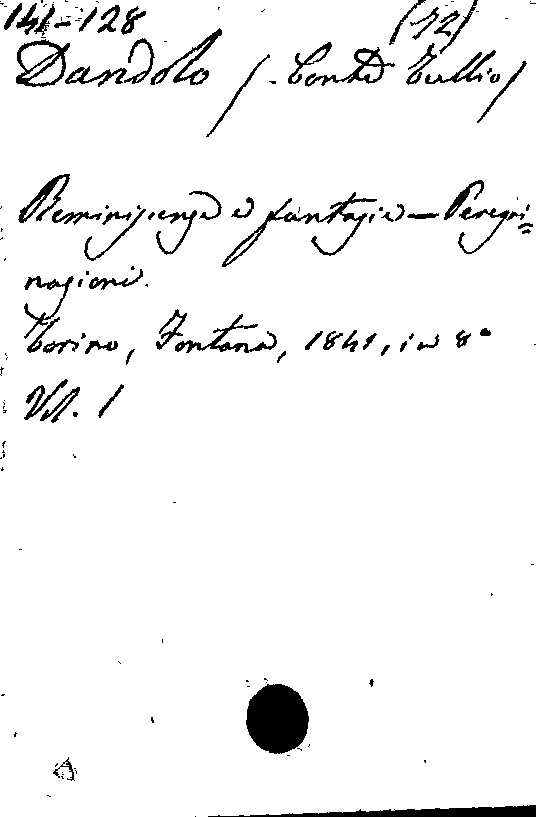 141-128 (72)
Dandolo /. Conte Tullio/
Reminiscenze e fantasie — Peregri=
nazioni.
Torino, Fontana, 1841, in 8°
Vol. 1